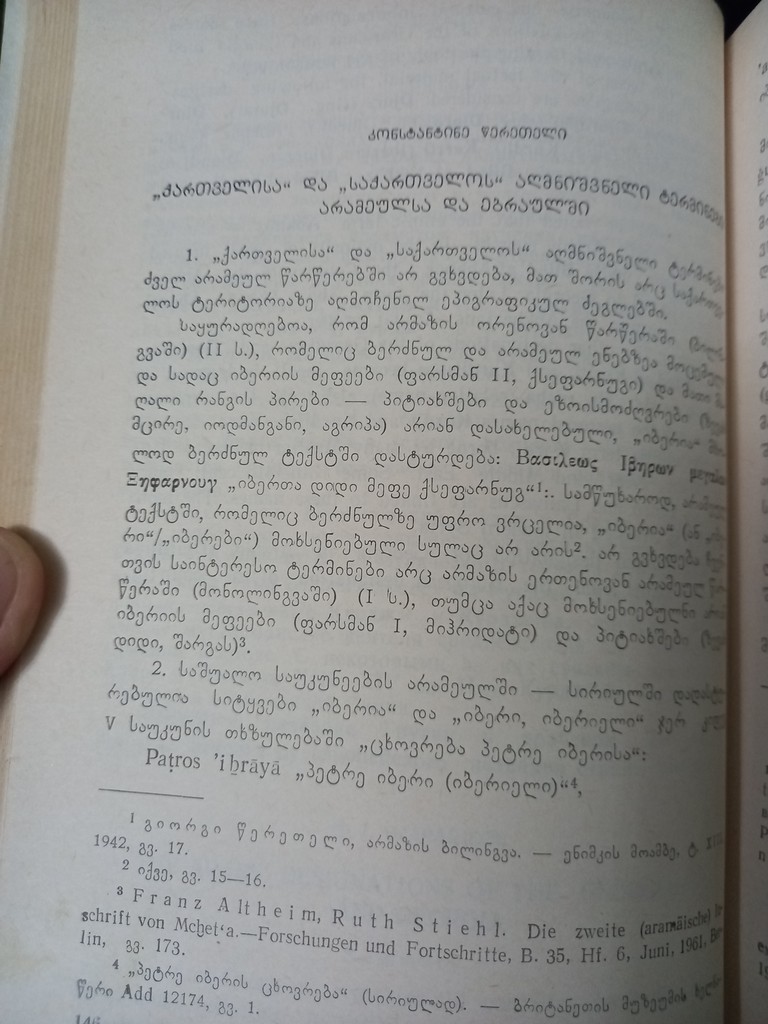 კონსტანტინე წერეთელი
„ქართველისა“ და „საქართველოს“ აღმნიშვნელი ტერმინები
არამეულსა და ებრაულში
1. „ქართველისა“ და „საქართველოს“ აღმნიშვნელი ტერმინები
ძველ არამეულ წარწერებში არ გვხვდება, მათ შორის არც
ლოს ტერიტორიაზე აღმოჩენილ ეპიგრაფიკულ ძეგლებში.
საყურადღებოა, რომ არმაზის ორენოვან წარწერაში
გვაში) (II ს.), რომელიც ბერძნულ და არამეულ ენებზეა
და სადაც იბერიის მეფეები (ფარსმან II, ქსეფარნუგი) და მათი
ღალი რანგის პირები — პიტიახშები და ეზოისმოძღვრები
მცირე, იოდმანგანი, აგრიპა) არიან დასახელებული, „იბერია“
ლოდ ბერძნულ ტექსტში დასტურდება: Βασιλεως Ιβηρων
Ξηφαρνουγ „იბერთა დიდი მეფე ქსეფარნუგ“¹:. სამწუხაროდ,
ტექსტში, რომელიც ბერძნულზე უფრო ვრცელია, „იბერია“ (ან
რი“/„იბერები“) მოხსენიებული სულაც არ არის². არ გვხვდება
თვის საინტერესო ტერმინები არც არმაზის ერთენოვან არამეულ
წერაში (მონოლინგვაში) (I ს.), თუმცა აქაც მოხსენიებულნი
იბერიის მეფეები (ფარსმან I, მიჰრიდატი) და პიტიახშები
დიდი, შარგას)³.
2. საშუალო საუკუნეების არამეულში — სირიულში
რებულია სიტყვები „იბერია“ და „იბერი, იბერიელი“ ჯერ
V საუკუნის თხზულებაში „ცხოვრება პეტრე იბერისა“:
Paṭros ’iḇrāyā „პეტრე იბერი (იბერიელი)“⁴,
¹ გიორგი წერეთელი, არმაზის ბილინგვა. — ენიმკის მოამბე, ტ.
1942, გვ. 17.
² იქვე, გვ. 15—16.
³ Franz Altheim, Ruth Stiehl. Die zweite (aramäische)
schrift von Mcḫet‘a.—Forschungen und Fortschritte, B. 35, Hf. 6, Juni, 1961,
lin, გვ. 173.
⁴ „პეტრე იბერის ცხოვრება“ (სირიულად). — ბრიტანეთის მუზეუმის
წერი Add 12174, გვ. 1.
146